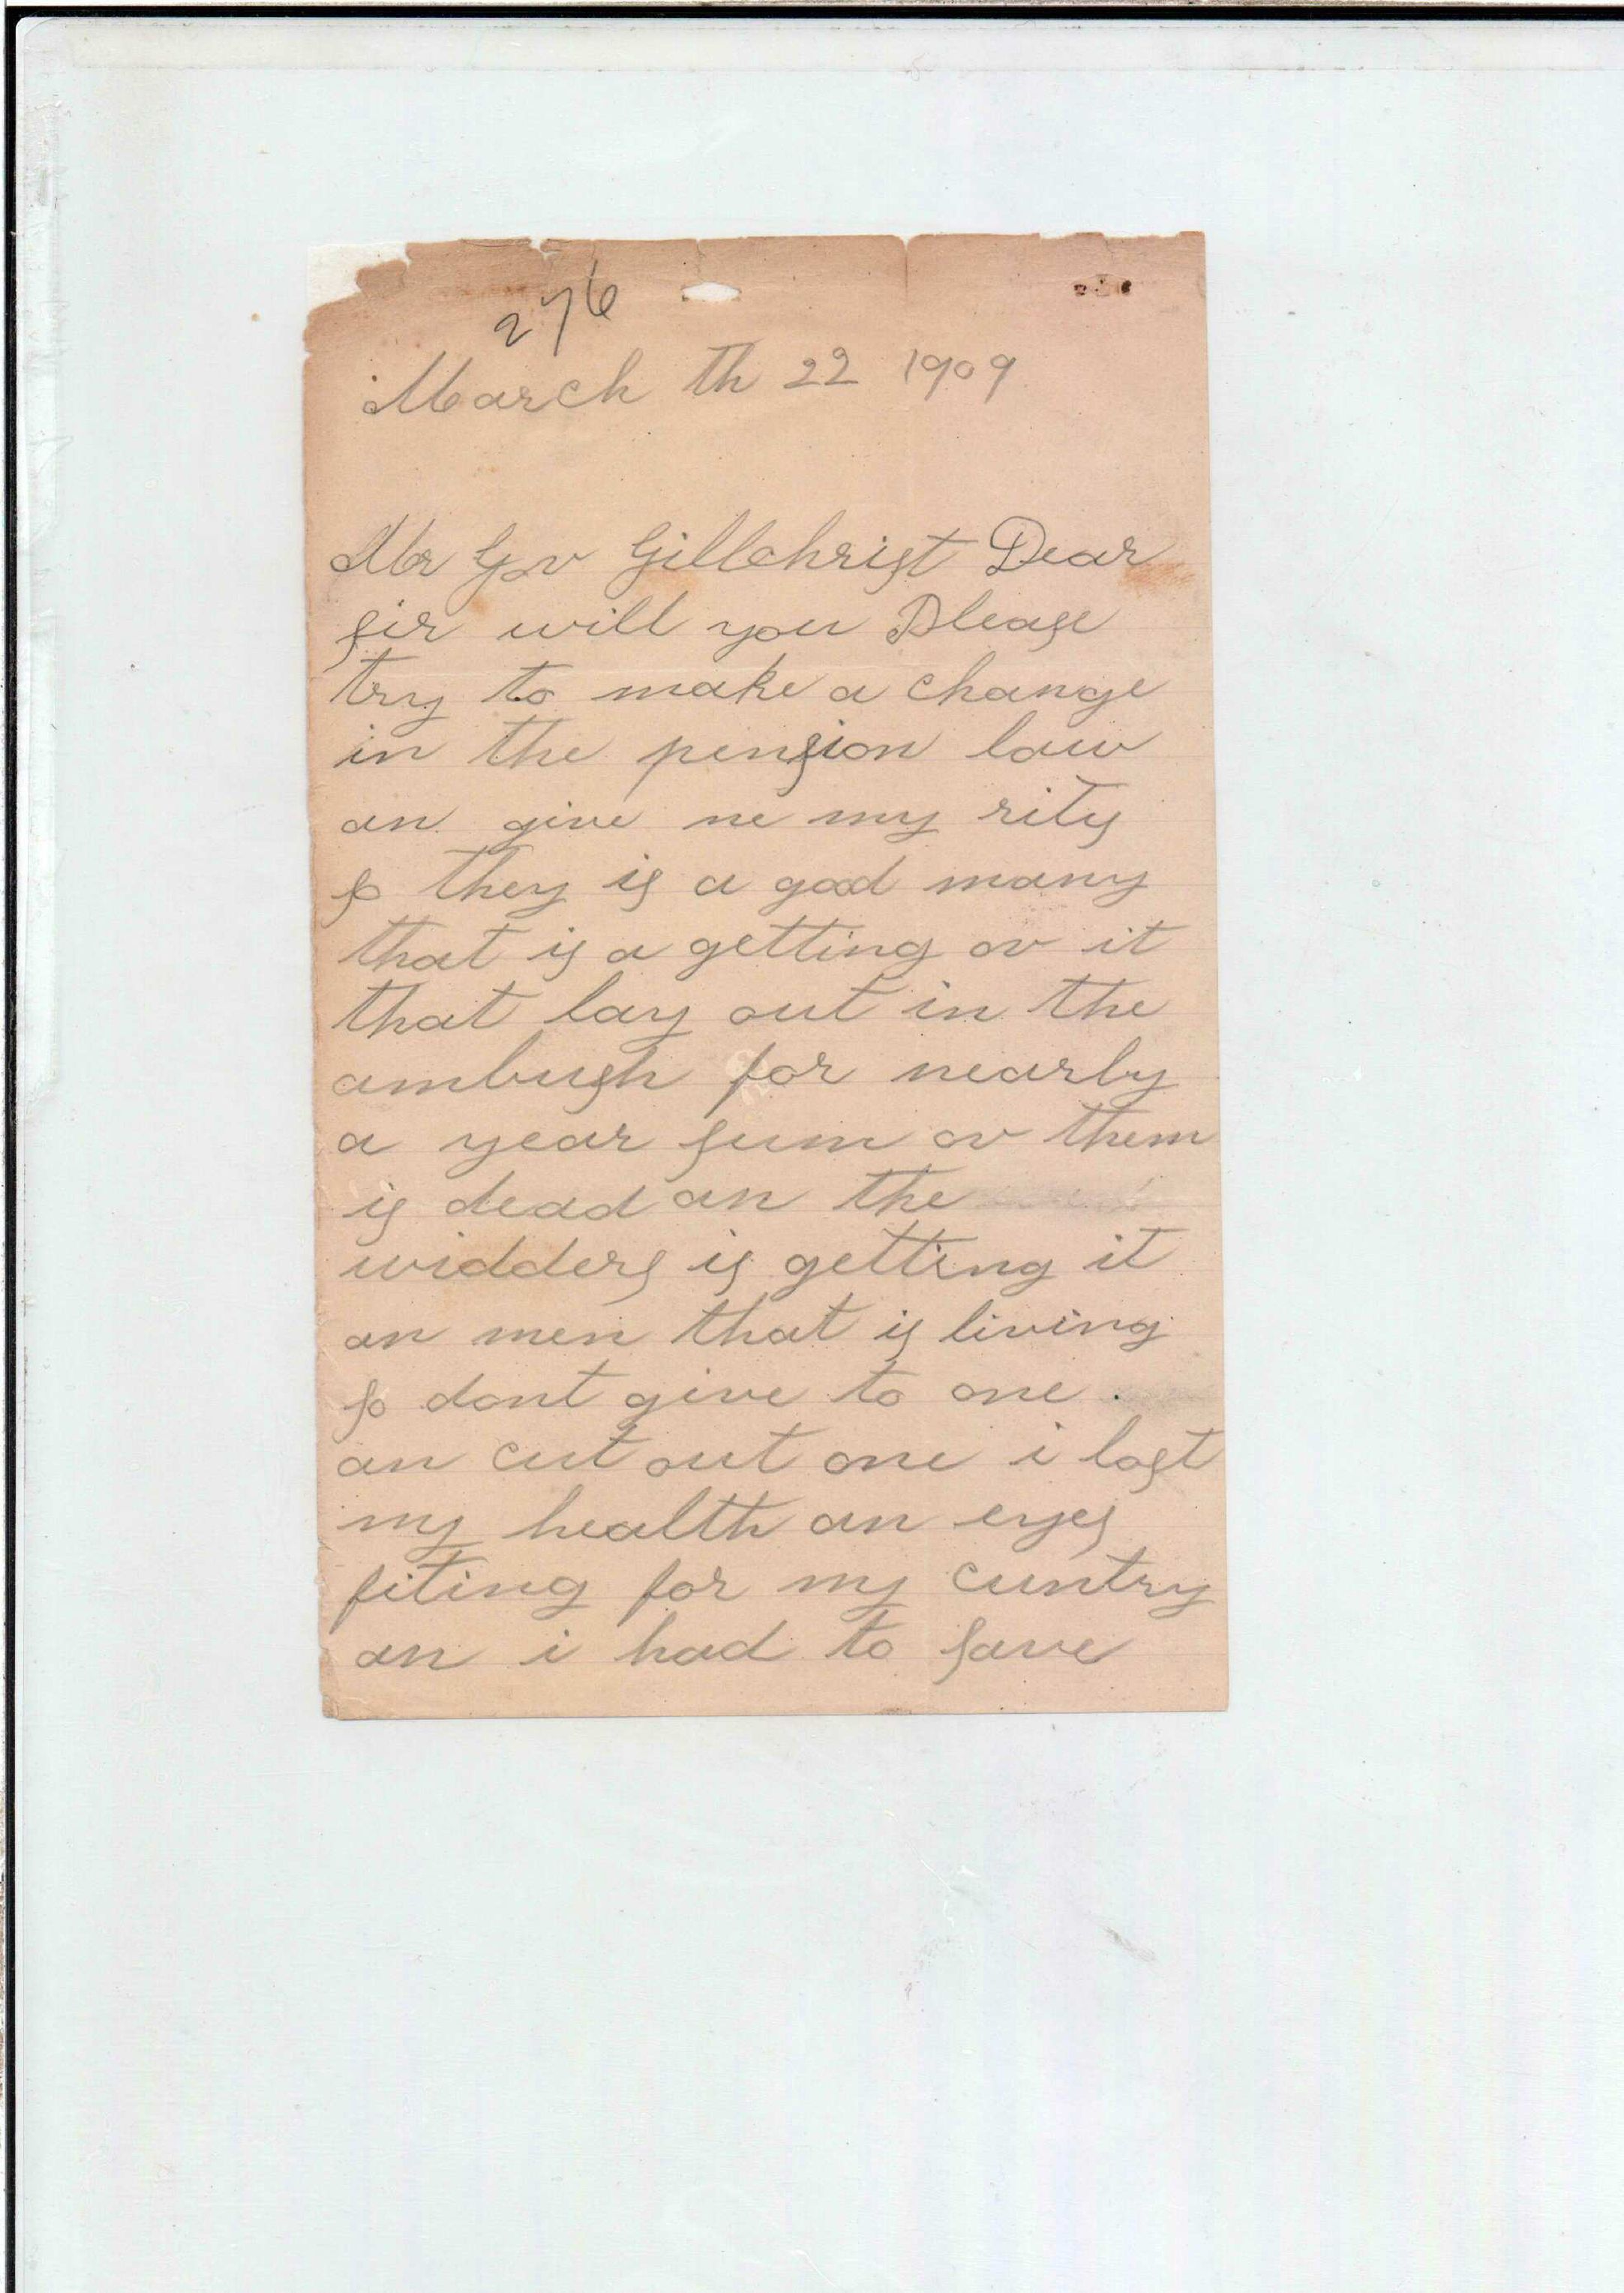 276
March th 22 1909
Mr Gov Gillchrist Dear
sir will you Please
try to make a change
in the pension law
an give me my rits
so they is a good many
that is a getting ov it
that lay out in the
ambush for nearly
a year sum ov them
is dead an the
widders is getting it
an men that is living
so dont give to one .
an cut out one i lost
my health an eyes
fiting for my cuntry
an i had to save